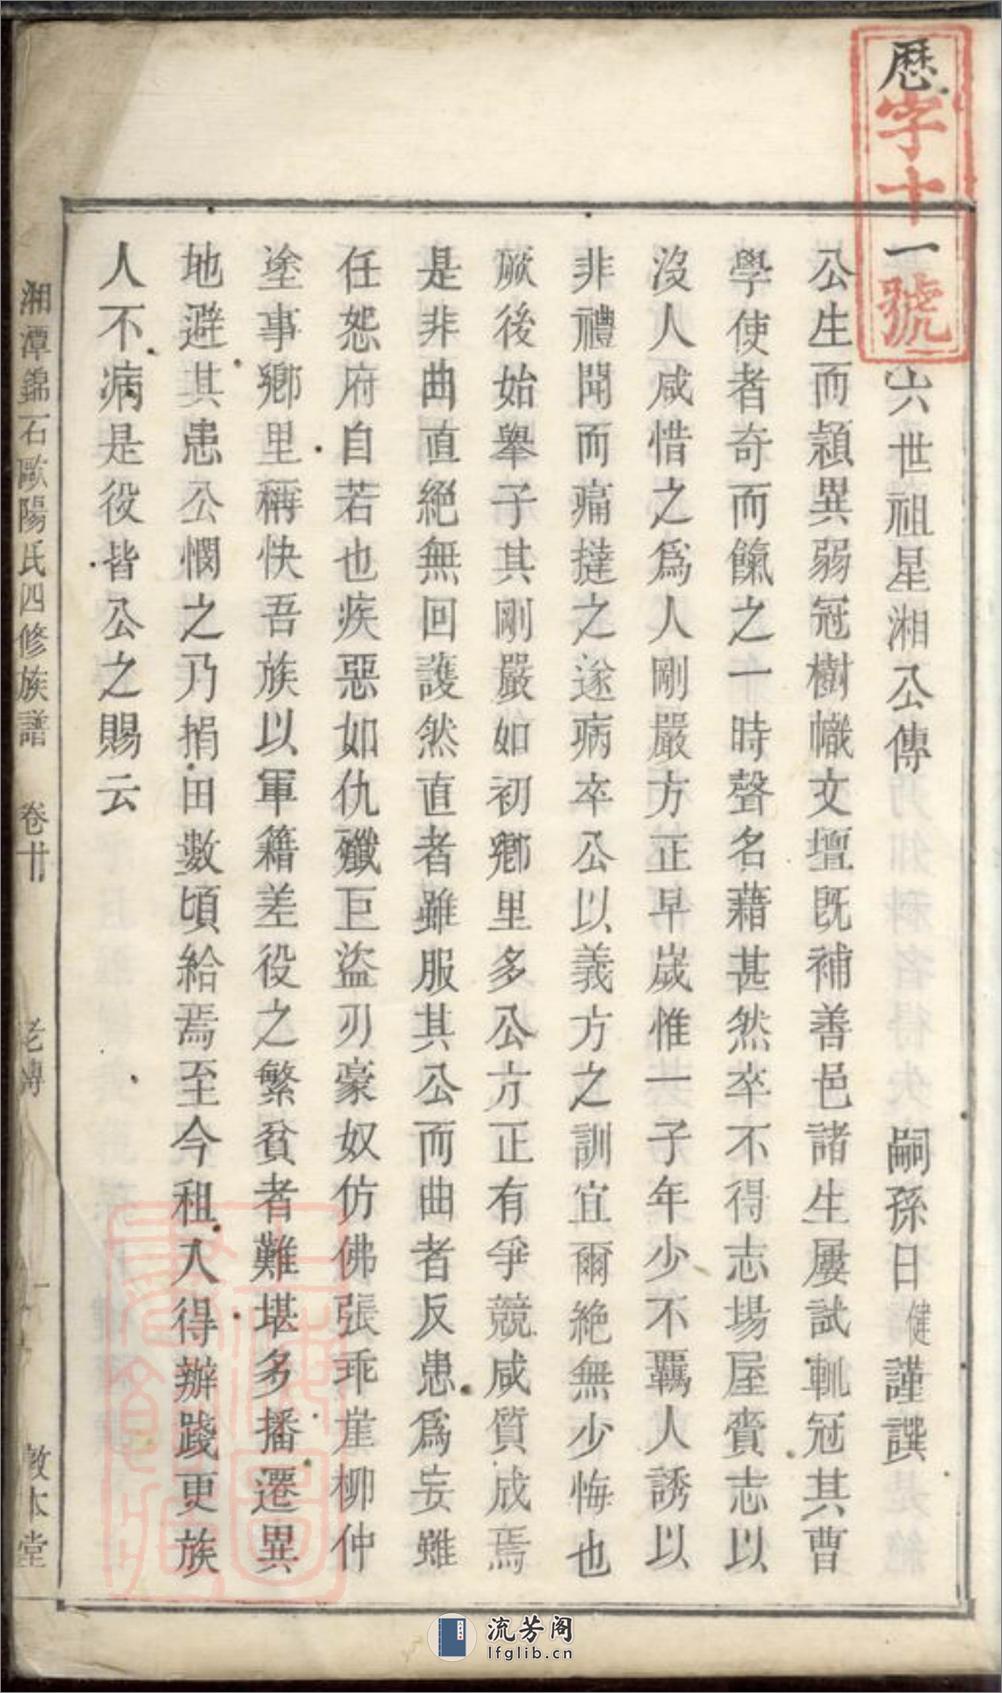 歷字十一號
六世祖星湘公傳 嗣孫日健謹譔
公生而穎異弱冠樹幟文壇既補善邑諸生屢試輒冠其曹
學使者奇而餼之一時聲名藉甚然卒不得志場屋賫志以
沒人咸惜之爲人剛嚴方正早歲惟一子年少不羈人誘以
非禮聞而痛撻之遂病卒公以義方之訓宜爾絶無少悔也
厥後始舉子其剛嚴如初鄉里多公方正有爭競咸質成焉
是非曲直絕無回護然直者雖服其公而曲者反患爲妄雖
任怨府自若也疾惡如仇殲巨盜刃豪奴仿佛張乖崖柳仲
塗事鄉里稱快吾族以軍籍差役之繁貧者難堪多播遷異
地避其患公憫之乃捐田數頃給焉至今租入得辦踐更族
人不病是役皆公之賜云
湘潭錦石歐陽氏四修族譜 卷廿 老傳 一 敦本堂
流芳阁
lfglib.cn